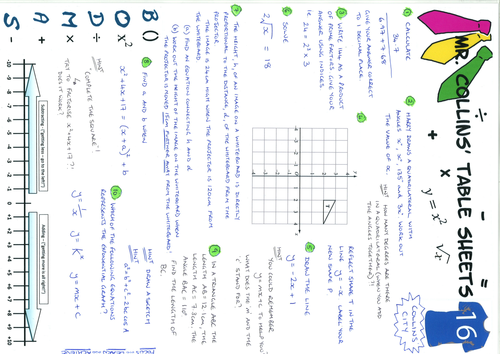 MR. COLLINS' TABLE SHEETS
÷ + x -
y = x² √x
COLLINS CITY
16
1 CALCULATE
34.7
6.97 + 7.69
GIVE YOUR ANSWER CORRECT
TO 1 DECIMAL PLACE.
2 HARRY DRAWS A QUADRILATERAL WITH
ANGLES x°, x°, 135° AND 3x°. WORK OUT
THE VALUE OF x.
HINT HOW MANY DEGREES ARE THERE
IN A QUADRILATERAL (WHEN YOU ADD
THE ANGLES TOGETHER?!)
3 WRITE 144 AS A PRODUCT
OF PRIME FACTORS. GIVE YOUR
ANSWER USING INDICES.
IE 24 = 2³ × 3
4
T
REFLECT SHAPE T IN THE
LINE y = -x. LABEL YOUR
NEW SHAPE P
5 DRAW THE LINE
y = -2x + 1
HINT YOU COULD REMEMBER
y = mx + c TO HELP YOU!
WHAT DOES THE M AND THE
'C' STAND FOR?
6 SOLVE
2√x = 18
7 THE HEIGHT, h, OF AN IMAGE ON A WHITEBOARD IS DIRECTLY
PROPORTIONAL TO THE DISTANCE, d, OF THE WHITEBOARD FROM THE
PROJECTOR.
THE IMAGE IS 24cm HIGH WHEN THE PROJECTOR IS 120cm FROM
THE WHITEBOARD.
(a) FIND AN EQUATION CONNECTING h AND d
(b) WORK OUT THE HEIGHT OF THE IMAGE ON THE WHITEBOARD WHEN
THE PROJECTOR IS MOVED 15cm FURTHER AWAY FROM THE WHITEBOARD.
8 FIND a AND b WHEN
x² + 4x + 17 = (x + a)² + b
HINT
"COMPLETE THE SQUARE"!
TRY TO FACTORISE x² + 4x + 17?!
DOES IT WORK?
9 IN A TRIANGLE ABC THE
LENGTH AB = 12.1cm, THE
LENGTH AC = 7.3cm, THE
ANGLE BAC = 110°
FIND THE LENGTH OF
BC.
HINT DRAW A SKETCH
HINT a² = b² + c² - 2bc cos A
10 WHICH OF THE FOLLOWING EQUATIONS
REPRESENTS THE EXPONENTIAL GRAPH?
y = 1/x y = kˣ y = mx + c
B ()
O x²
D ÷
M ×
A +
S -
-10 -9 -8 -7 -6 -5 -4 -3 -2 -1 0 +1 +2 +3 +4 +5 +6 +7 +8 +9 +10